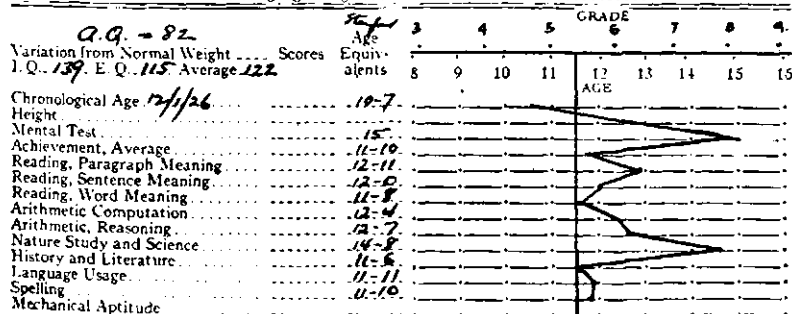 A.Q. = 82
Stanford Age Equivalents
GRADE
3 4 5 6 7 8 9
Variation from Normal Weight .... Scores
I.Q. 139. E.Q. 115 Average 122
8 9 10 11 12 13 14 15 16
AGE
Chronological Age 12/1/26 10-7
Height
Mental Test 15
Achievement, Average 11-10
Reading, Paragraph Meaning 12-11
Reading, Sentence Meaning 12-0
Reading, Word Meaning 11-8
Arithmetic Computation 12-4
Arithmetic, Reasoning 12-7
Nature Study and Science 14-8
History and Literature 11-6
Language Usage 11-11
Spelling 11-10
Mechanical Aptitude